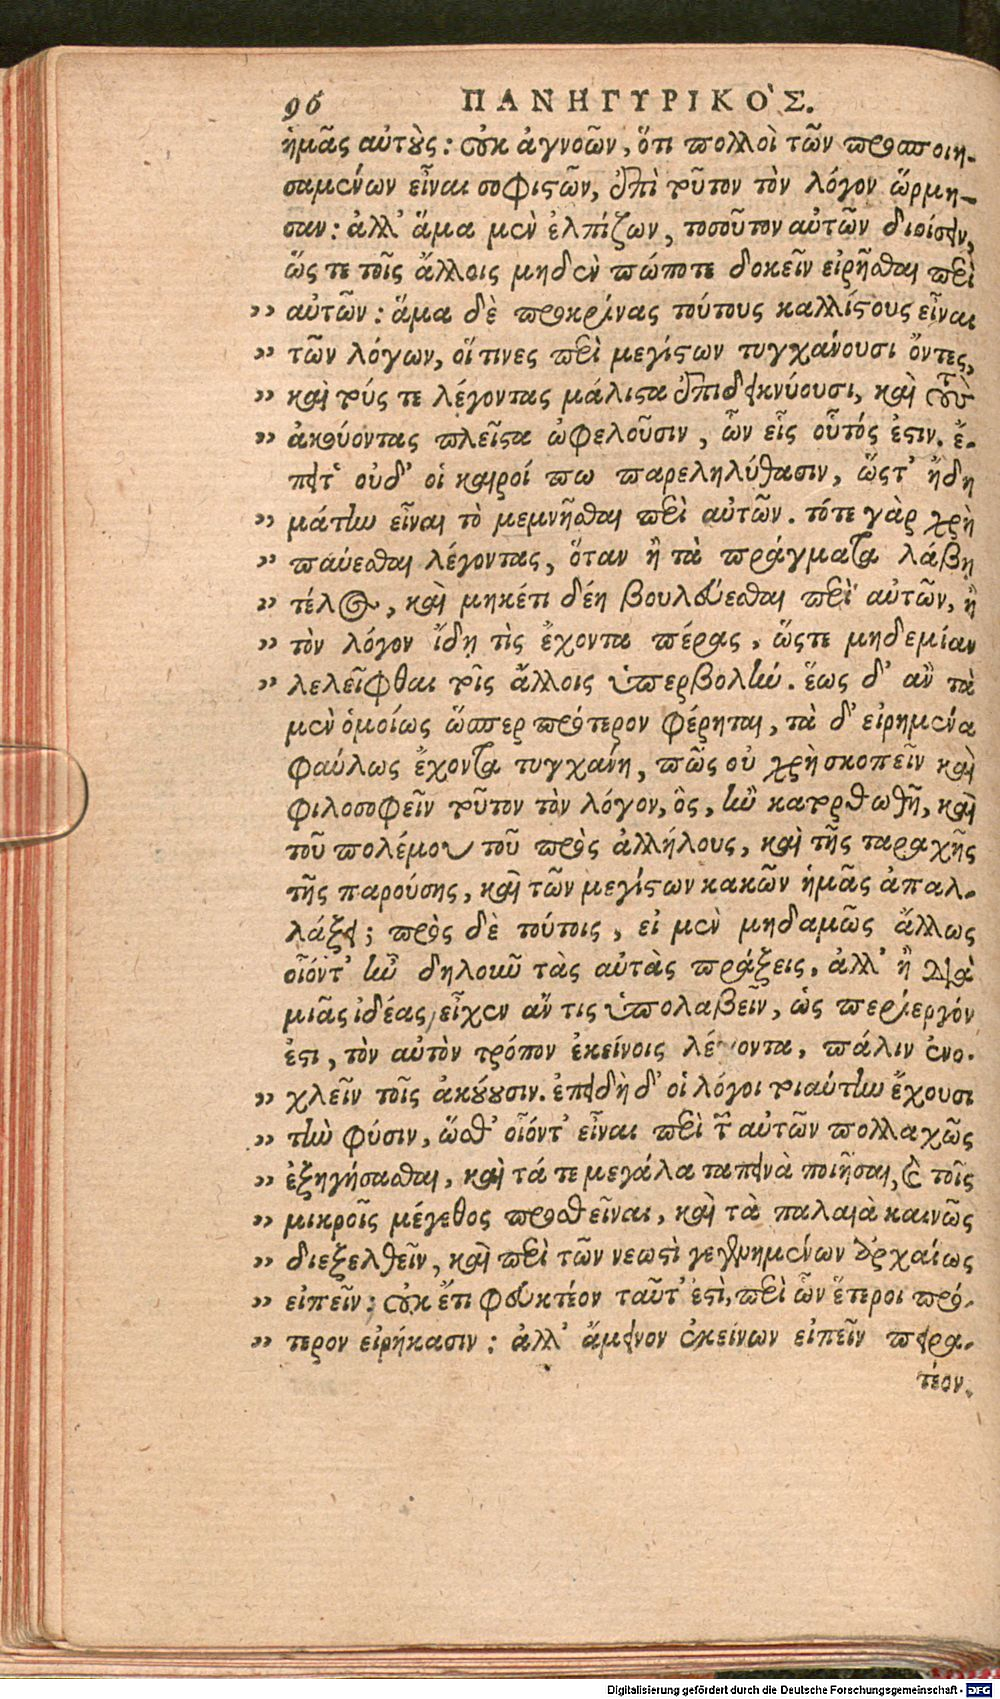 96 ΠΑΝΗΓΥΡΙΚΟ'Σ.
ἡμᾶς αὐτοὺς: οὐκ ἀγνοῶν, ὅτι πολλοὶ τῶν προσποιη-
σαμένων εἶναι σοφιστῶν, ἐπὶ τοῦτον τὸν λόγον ὥρμη-
σαν: ἀλλ' ἅμα μὲν ἐλπίζων, τοσοῦτον αὐτῶν διοίσειν,
ὥς τε τοῖς ἄλλοις μηδὲν πώποτε δοκεῖν εἰρῆσθαι περὶ
" αὐτῶν: ἅμα δὲ προκρίνας τούτους καλλίστους εἶναι
" τῶν λόγων, οἵ τινες περὶ μεγίστων τυγχάνουσι ὄντες,
" καὶ τούς τε λέγοντας μάλιστα ἐπιδεικνύουσι, καὶ τοὺς
" ἀκούοντας πλεῖστα ὠφελοῦσιν, ὧν εἷς οὗτός ἐστιν. ἔ-
πειτ' οὐδ' οἱ καιροί πω παρεληλύθασιν, ὥστ' ἤδη
" μάτην εἶναι τὸ μεμνῆσθαι περὶ αὐτῶν. τότε γὰρ χρὴ
" παύεσθαι λέγοντας, ὅταν ἢ τὰ πράγματα λάβῃ
" τέλος, καὶ μηκέτι δέῃ βουλεύεσθαι περὶ αὐτῶν, ἢ
" τὸν λόγον ἴδῃ τὶς ἔχοντα πέρας, ὥστε μηδεμίαν
" λελεῖφθαι τοῖς ἄλλοις ὑπερβολήν. ἕως δ' ἂν τὰ
μὲν ὁμοίως ὥσπερ πρότερον φέρηται, τὰ δ' εἰρημένα
φαύλως ἔχοντα τυγχάνῃ, πῶς οὐ χρὴ σκοπεῖν καὶ
φιλοσοφεῖν τοῦτον τὸν λόγον, ὃς, ἢν κατορθωθῇ, καὶ
τοῦ πολέμου τοῦ πρὸς ἀλλήλους, καὶ τῆς ταραχῆς
τῆς παρούσης, καὶ τῶν μεγίστων κακῶν ἡμᾶς ἀπαλ-
λάξει; πρὸς δὲ τούτοις, εἰ μὲν μηδαμῶς ἄλλως
οἷόντ' ἦν δηλοιοῦ τὰς αὐτὰς πράξεις, ἀλλ' ἢ διὰ
μιᾶς ἰδέας, εἶχεν ἄν τις ὑπολαβεῖν, ὡς περίεργόν
ἐστι, τὸν αὐτὸν τρόπον ἐκείνοις λέγοντα, πάλιν ἐνο-
" χλεῖν τοῖς ἀκούουσιν. ἐπειδὴ δ' οἱ λόγοι τοιαύτην ἔχουσι
" τὴν φύσιν, ὥσθ' οἷόντ' εἶναι περὶ τῶν αὐτῶν πολλαχῶς
" ἐξηγήσασθαι, καὶ τά τε μεγάλα ταπεινὰ ποιῆσαι, καὶ τοῖς
" μικροῖς μέγεθος προσθεῖναι, καὶ τὰ παλαιὰ καινῶς
" διεξελθεῖν, καὶ περὶ τῶν νεωστὶ γεγενημένων ἀρχαίως
" εἰπεῖν; οὐκ ἔτι φευκτέον ταῦτ' ἐστὶ, περὶ ὧν ἕτεροι πρό-
" τερον εἰρήκασιν: ἀλλ' ἄμεινον ἐκείνων εἰπεῖν πειρα-
τέον.
Digitalisierung gefördert durch die Deutsche Forschungsgemeinschaft - DFG